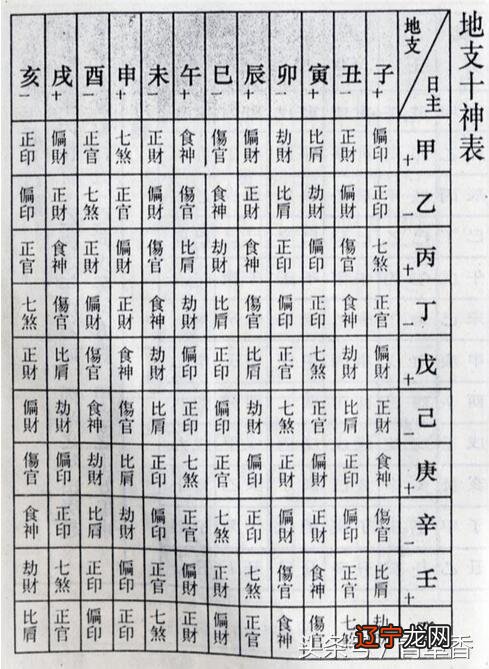 地支十神表
地支 日主
子+ 丑- 寅+ 卯- 辰+ 巳- 午+ 未- 申+ 酉- 戌+ 亥-
甲+ 偏印 正財 比肩 劫財 偏財 傷官 食神 正財 七煞 正官 偏財 正印
乙- 正印 偏財 劫財 比肩 正財 食神 傷官 偏財 正官 七煞 正財 偏印
丙+ 七煞 傷官 偏印 正印 食神 劫財 比肩 傷官 偏財 正財 食神 正官
丁- 正官 食神 正印 偏印 傷官 比肩 劫財 食神 正財 偏財 傷官 七煞
戊+ 偏財 劫財 七煞 正官 比肩 正印 偏印 劫財 食神 傷官 比肩 正財
己- 正財 比肩 正官 七煞 劫財 偏印 正印 比肩 傷官 食神 劫財 偏財
庚+ 食神 正印 偏財 正財 偏印 正官 七煞 正印 比肩 劫財 偏印 傷官
辛- 傷官 偏印 正財 偏財 正印 七煞 正官 偏印 劫財 比肩 正印 食神
壬+ 比肩 正官 食神 傷官 七煞 正財 偏財 正官 偏印 正印 七煞 劫財
傷官 食神 正官 偏財 正財 七煞 正印 偏印 正官 比肩
辽宁龙网